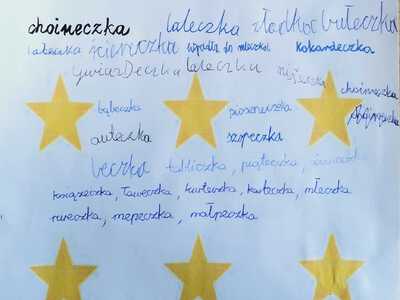 choineczka laleczka słodkość bułeczka
laleczka ściereczka wpadła do mleczka kokardeczka
Gwiazdeczka laleczka choineczka
bąbeczka pioseneczka
auteczka szopeczka
beczka tabliczka, piąteczka,
książeczka, ławeczka, kurteczka, karteczka, mleczka
rureczka, mepeczka, małpeczka